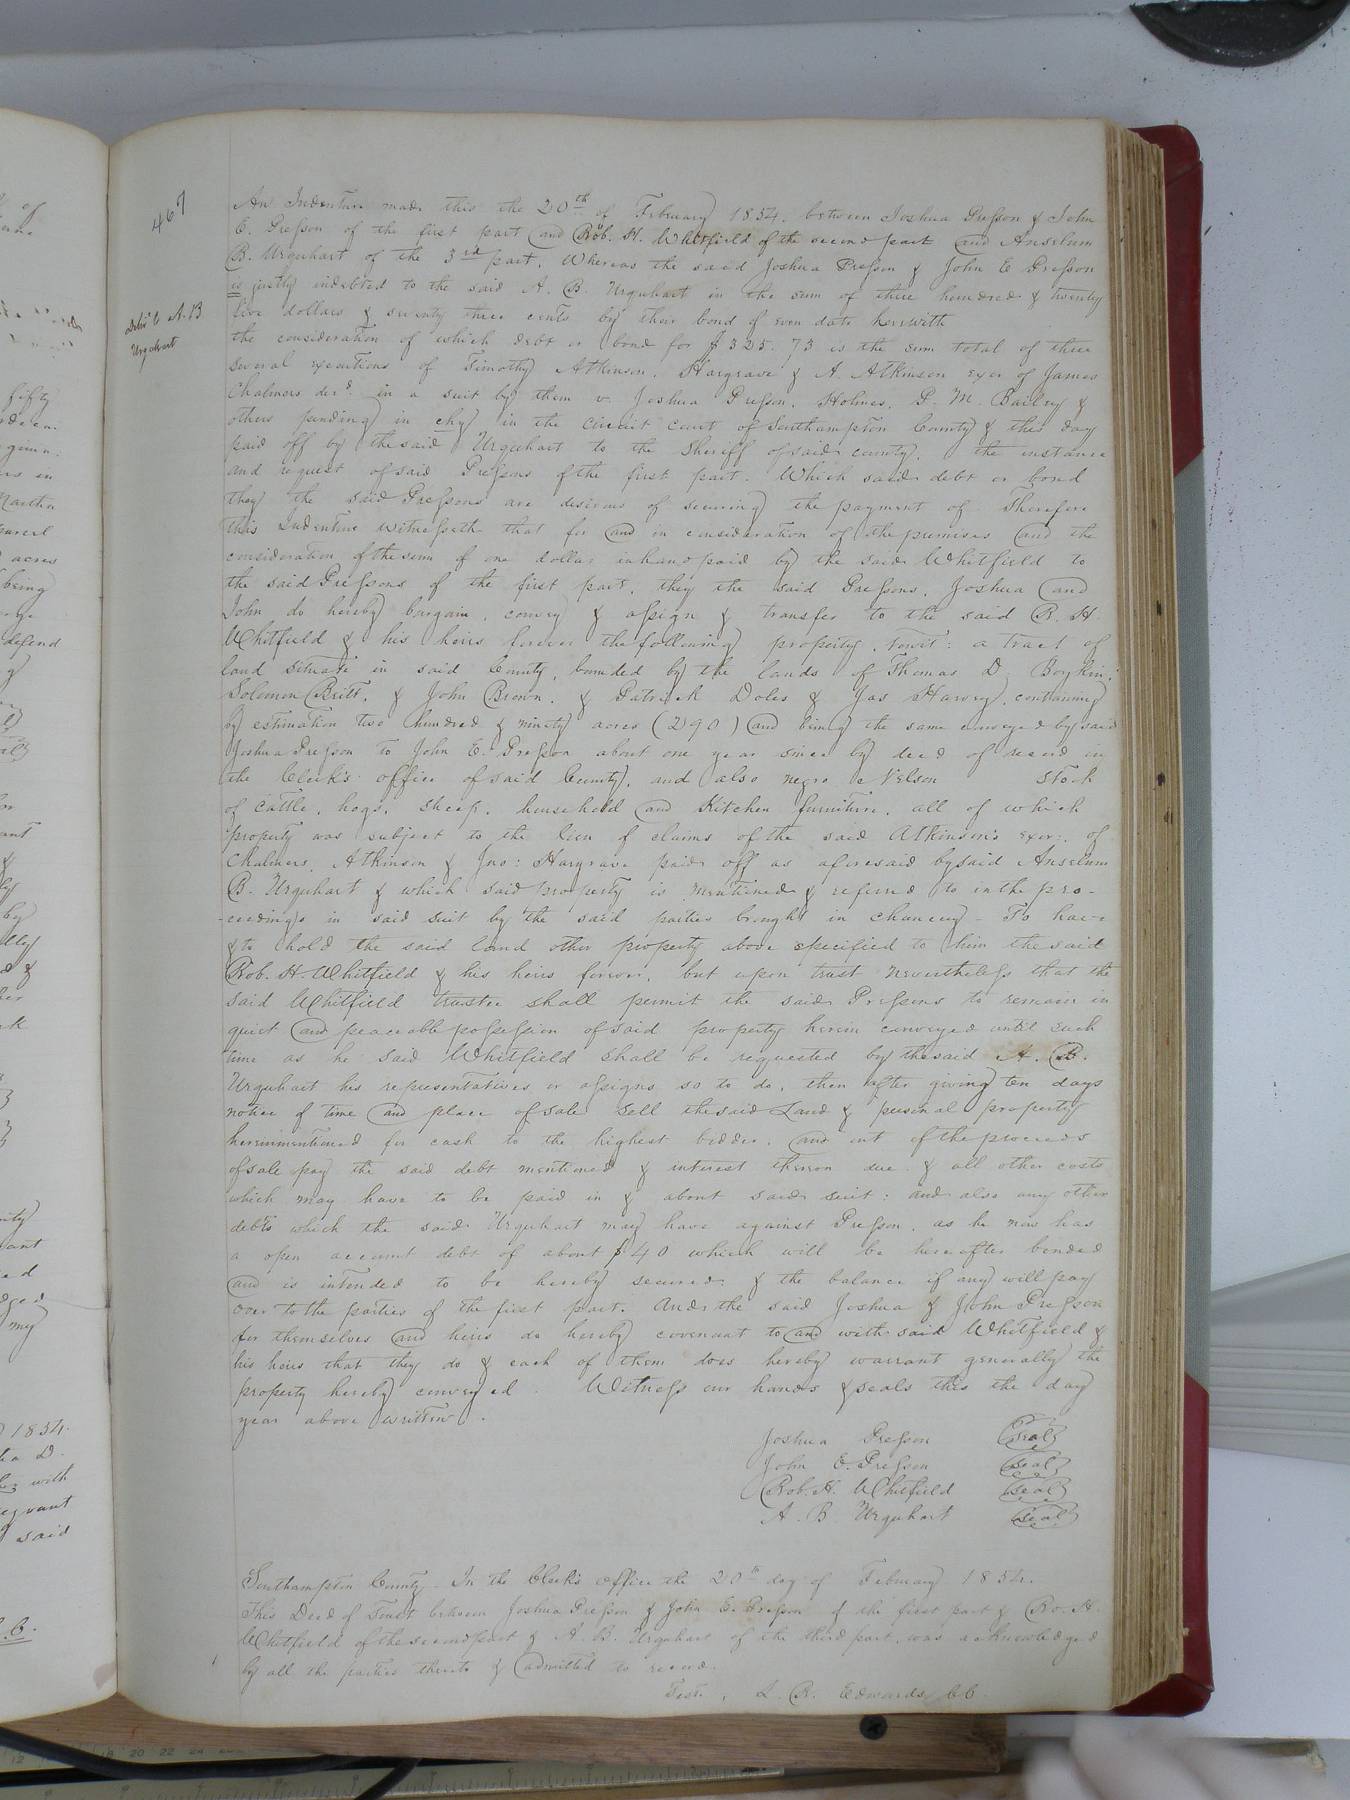 467
Deliv'd to A. B.
Urquhart
An Indenture made this the 20th of February 1854. between Joshua Presson & John
E. Presson of the first part and Rob. H. Whitfield of the second part and Anselum
B. Urquhart of the 3rd part. Whereas the said Joshua Presson & John E Presson
is justly indebted to the said A. B. Urquhart in the sum of three hundred & twenty
five dollars & seventy three cents by their bond of even date herewith
the consideration of which debt or bond for $325.73 is the sum total of three
several executions of Timothy Atkinson, Hargrave & A. Atkinson exer of James
Chalmers decd. in a suit by them v. Joshua Presson, Holmes, P. M. Bailey &
others pending in chy in the circuit court of Southampton County & this day
paid off by the said Urquhart to the Sheriff of said county, the instance
and request of said Pressons of the first part. Which said debt or bond
they the said Pressons are desirous of securing the payment of. Therefore
this Indenture witnesseth that for and in consideration of the premises and the
consideration of the sum of one dollar in hand paid by the said Whitfield to
the said Pressons of the first part, they the said Pressons, Joshua and
John do hereby bargain, convey & assign & transfer to the said R. H.
Whitfield & his heirs forever the following property, towit: a tract of
land situate in said County, bounded by the lands of Thomas D. Boykin,
Solomon Britt, & John Brown, & Patrick Doles & Jas Harvey, containing
by estimation two hundred & ninety acres (290) and being the same conveyed by said
Joshua Presson to John E. Presson about one year since by deed of record in
the Clerk's office of said County, and also negro Nelson stock
of cattle, hogs, sheep, household and Kitchen furniture, all of which
property was subject to the lien of claims of the said Atkinson's Exer: of
Chalmers, Atkinson & Jno: Hargrave paid off as aforesaid by said Anselum
B. Urquhart & which said property is mentioned & referred to in the pro-
-ceedings in said suit by the said parties brought in chancery - To have
& to hold the said land other property above specified to him the said
Rob. H. Whitfield & his heirs forever, but upon trust nevertheless that the
said Whitfield trustee shall permit the said Pressons to remain in
quiet and peaceable possession of said property herein conveyed until such
time as he said Whitfield shall be requested by the said A. B.
Urquhart his representatives or assigns so to do, then after giving ten days
notice of time and place of sale sell the said Land & personal property
hereinmentioned for cash to the highest bidder, and out of the proceeds
of sale pay the said debt mentioned & interest thereon due & all other costs
which may have to be paid in & about said suit: and also any other
debts which the said Urquhart may have against Presson, as he now has
a open account debt of about $40 which will be hereafter bonded
and is intended to be hereby secured & the balance if any will pay
over to the parties of the first part. And the said Joshua & John Presson
for themselves and heirs do hereby covenant to and with said Whitfield &
his heirs that they do & each of them does hereby warrant generally the
property hereby conveyed. Witness our hands & seals this the day
year above written.
Joshua Presson Seal
John E. Presson Seal
Rob. H. Whitfield Seal
A. B. Urquhart Seal
Southampton County. In the Clerk's office the 20th day of February 1854.
This Deed of Trust between Joshua Presson & John E. Presson of the first part & Ro. H.
Whitfield of the second part & A. B. Urquhart of the third part, was acknowledged
by all the parties thereto & admitted to record.
Test. L. R. Edwards CC